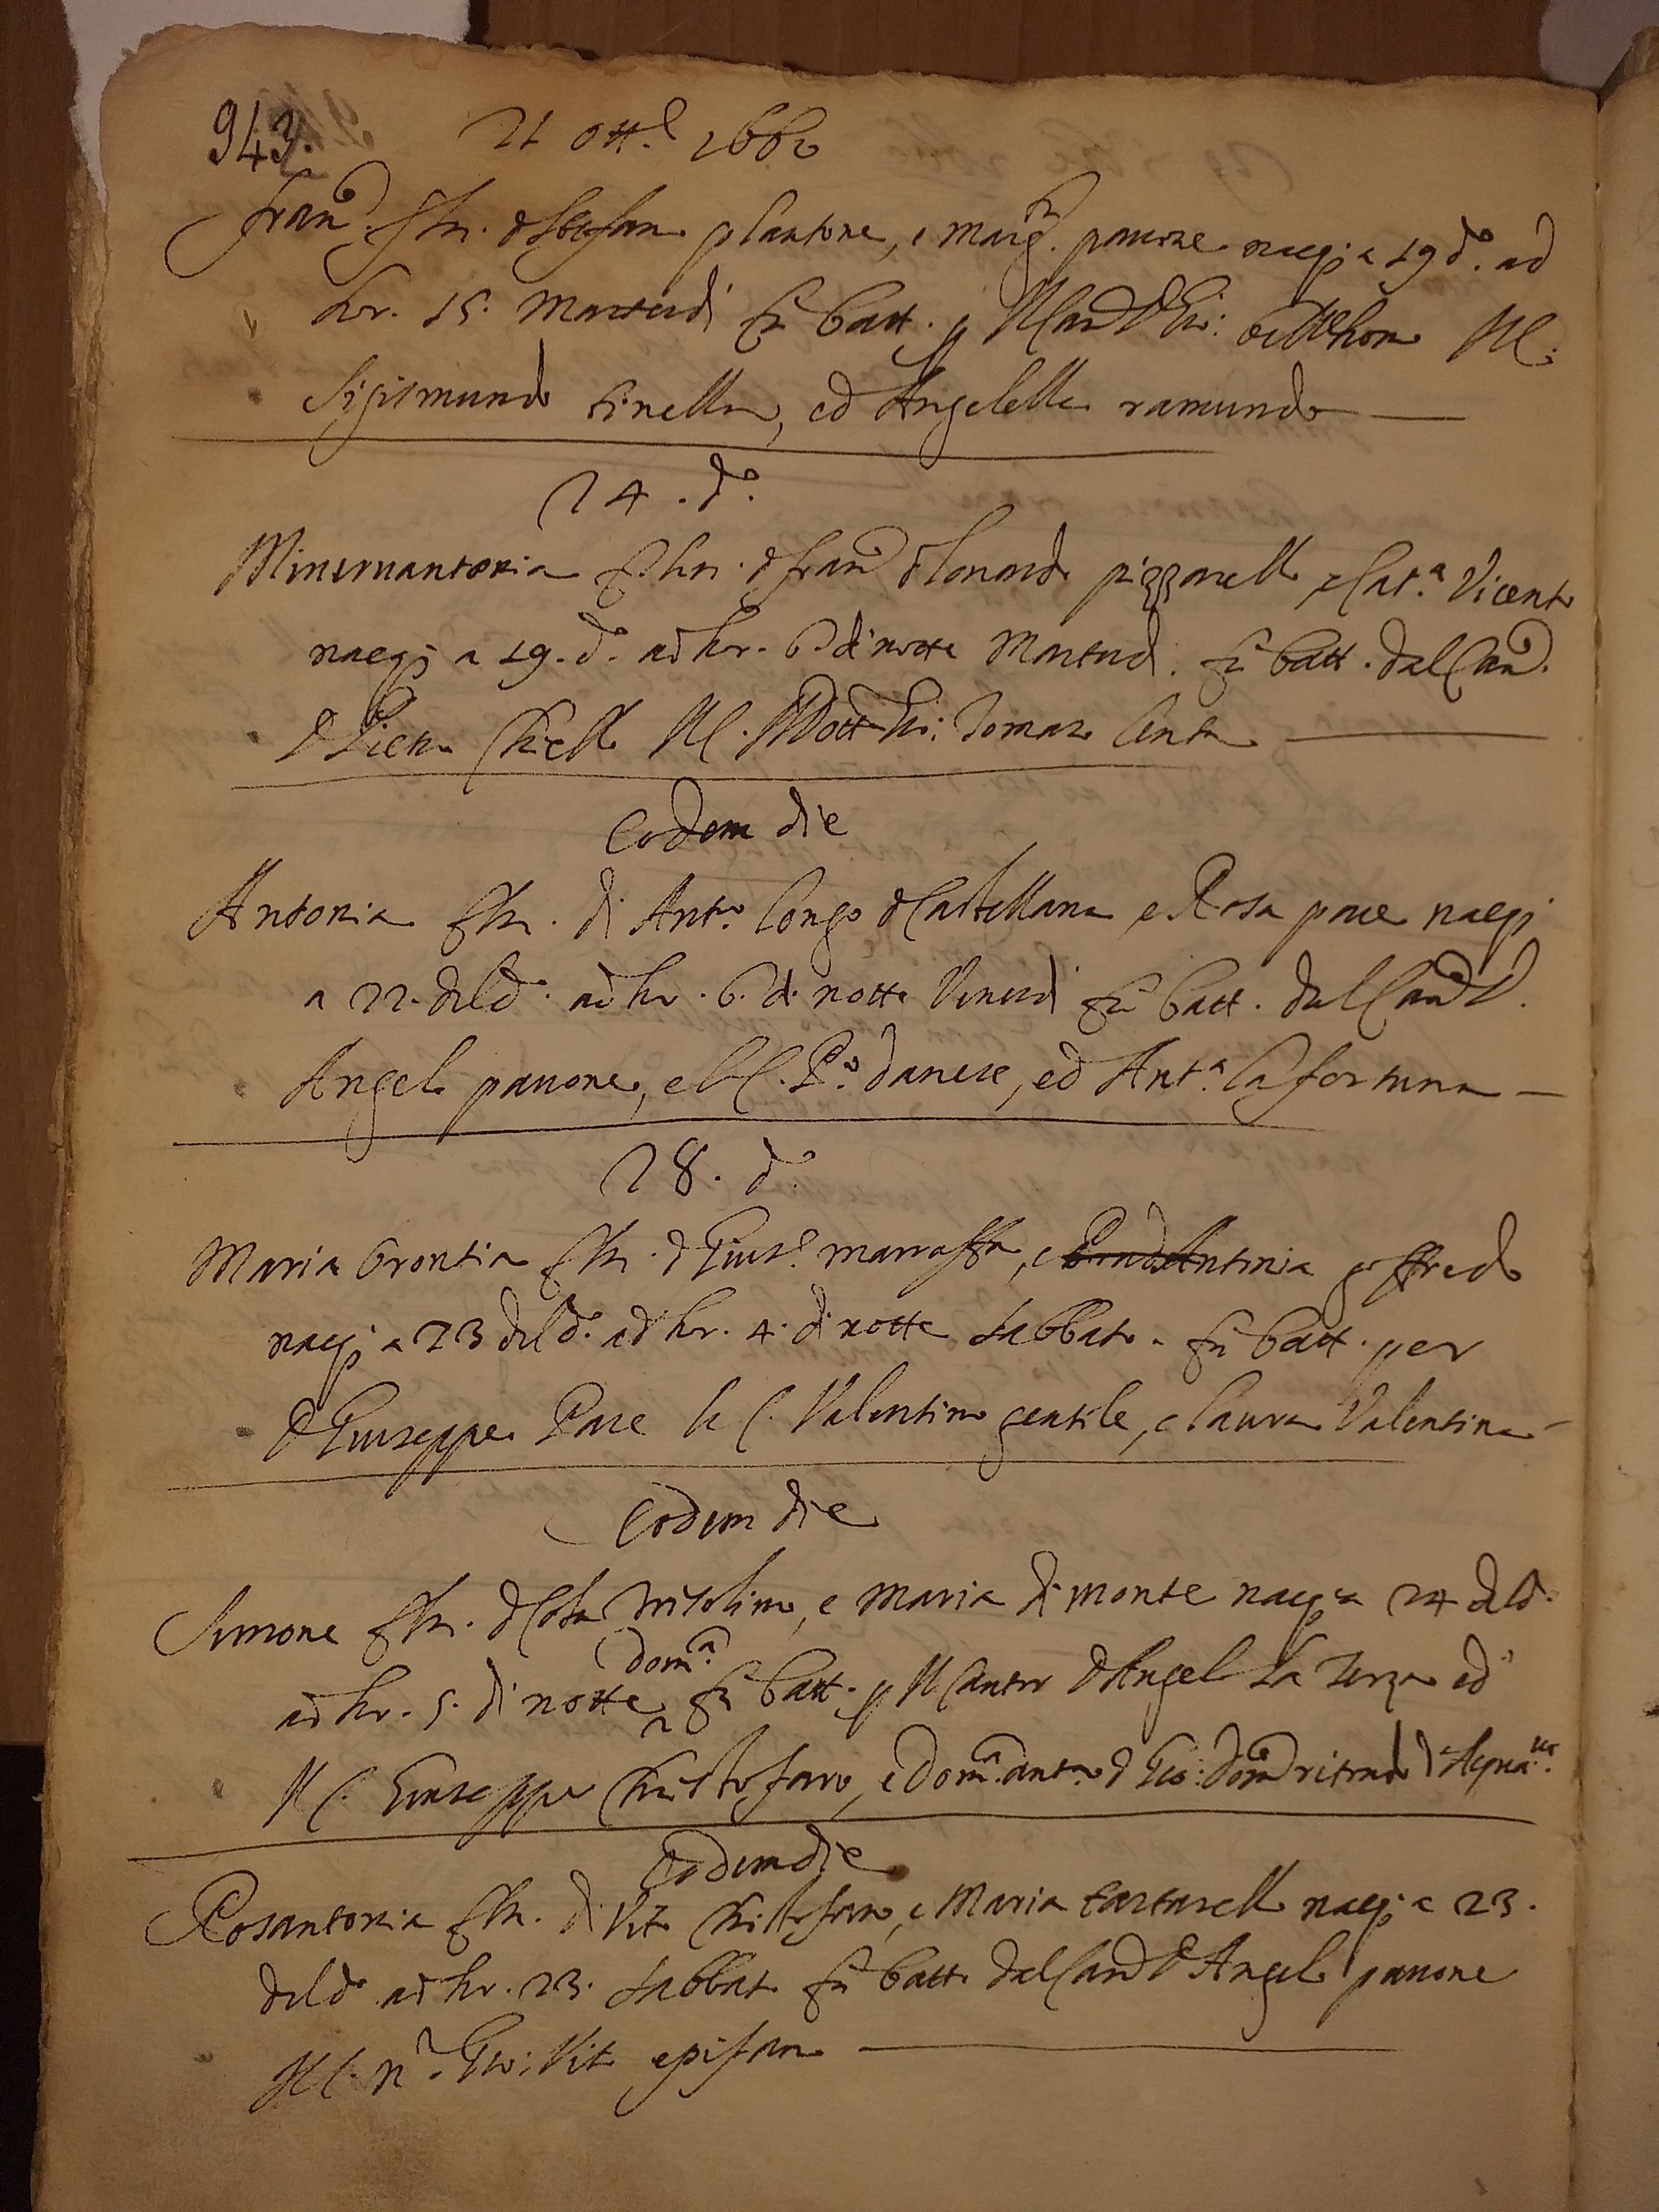 943.
21 ott.e 1660
Fran.co fig.o di Stefano plantone, e Marg.ta pauone nacq; a 19 d.o ad
hor. 15. Martedi fù batt. p il Can.D.Gio: il C.
Sigismundo tinella, ed Angelella ramundo
24. d.o
Mineruantonia di Fran.co di Lonardo pizzarello, e Cat.a Vicento
nacq; a 19. d.o ad hor. 6 di notte Martedi. fù batt. dal Can.co
D Pietro Chiello il C. il Dott. Gio: Tomaso
Eodem die
Antonia di Ant.o Longo di Castellana e Rosa pace nacq;
a 22. del d.o ad hor. 6. di notte Venerdi fù batt. dal Can.co D.
Angelo pauone, e il C. P.o danese, ed Ant.a La fortuna
28. d.o
Maria Orontia di Gius.e marraffa, e Antonia goffredo
nacq; a 23 del d.o ad hor. 4. di notte Sabbato fù batt. per
D Giuseppe Pace li C. Valentino gentile, e Laura Valentina
Eodem die
Simone di Cola e Maria di Monte nacq; a 24 del d.o
dom.a
ad hor. 5. di notte fù batt. p il Cantor D Angelo La Terza ed
il C. Giuseppe Christofaro, e Dom.a ant.a di Gio: Dom.co
Eodem die
Rosantonia di Vito Christofaro, e Maria tartarello nacq; a 23.
del d.o ad hor. 23. Sabbato fù batt. dal Can.co D Angelo pauone
il C. N.r Gio: Vito epifano